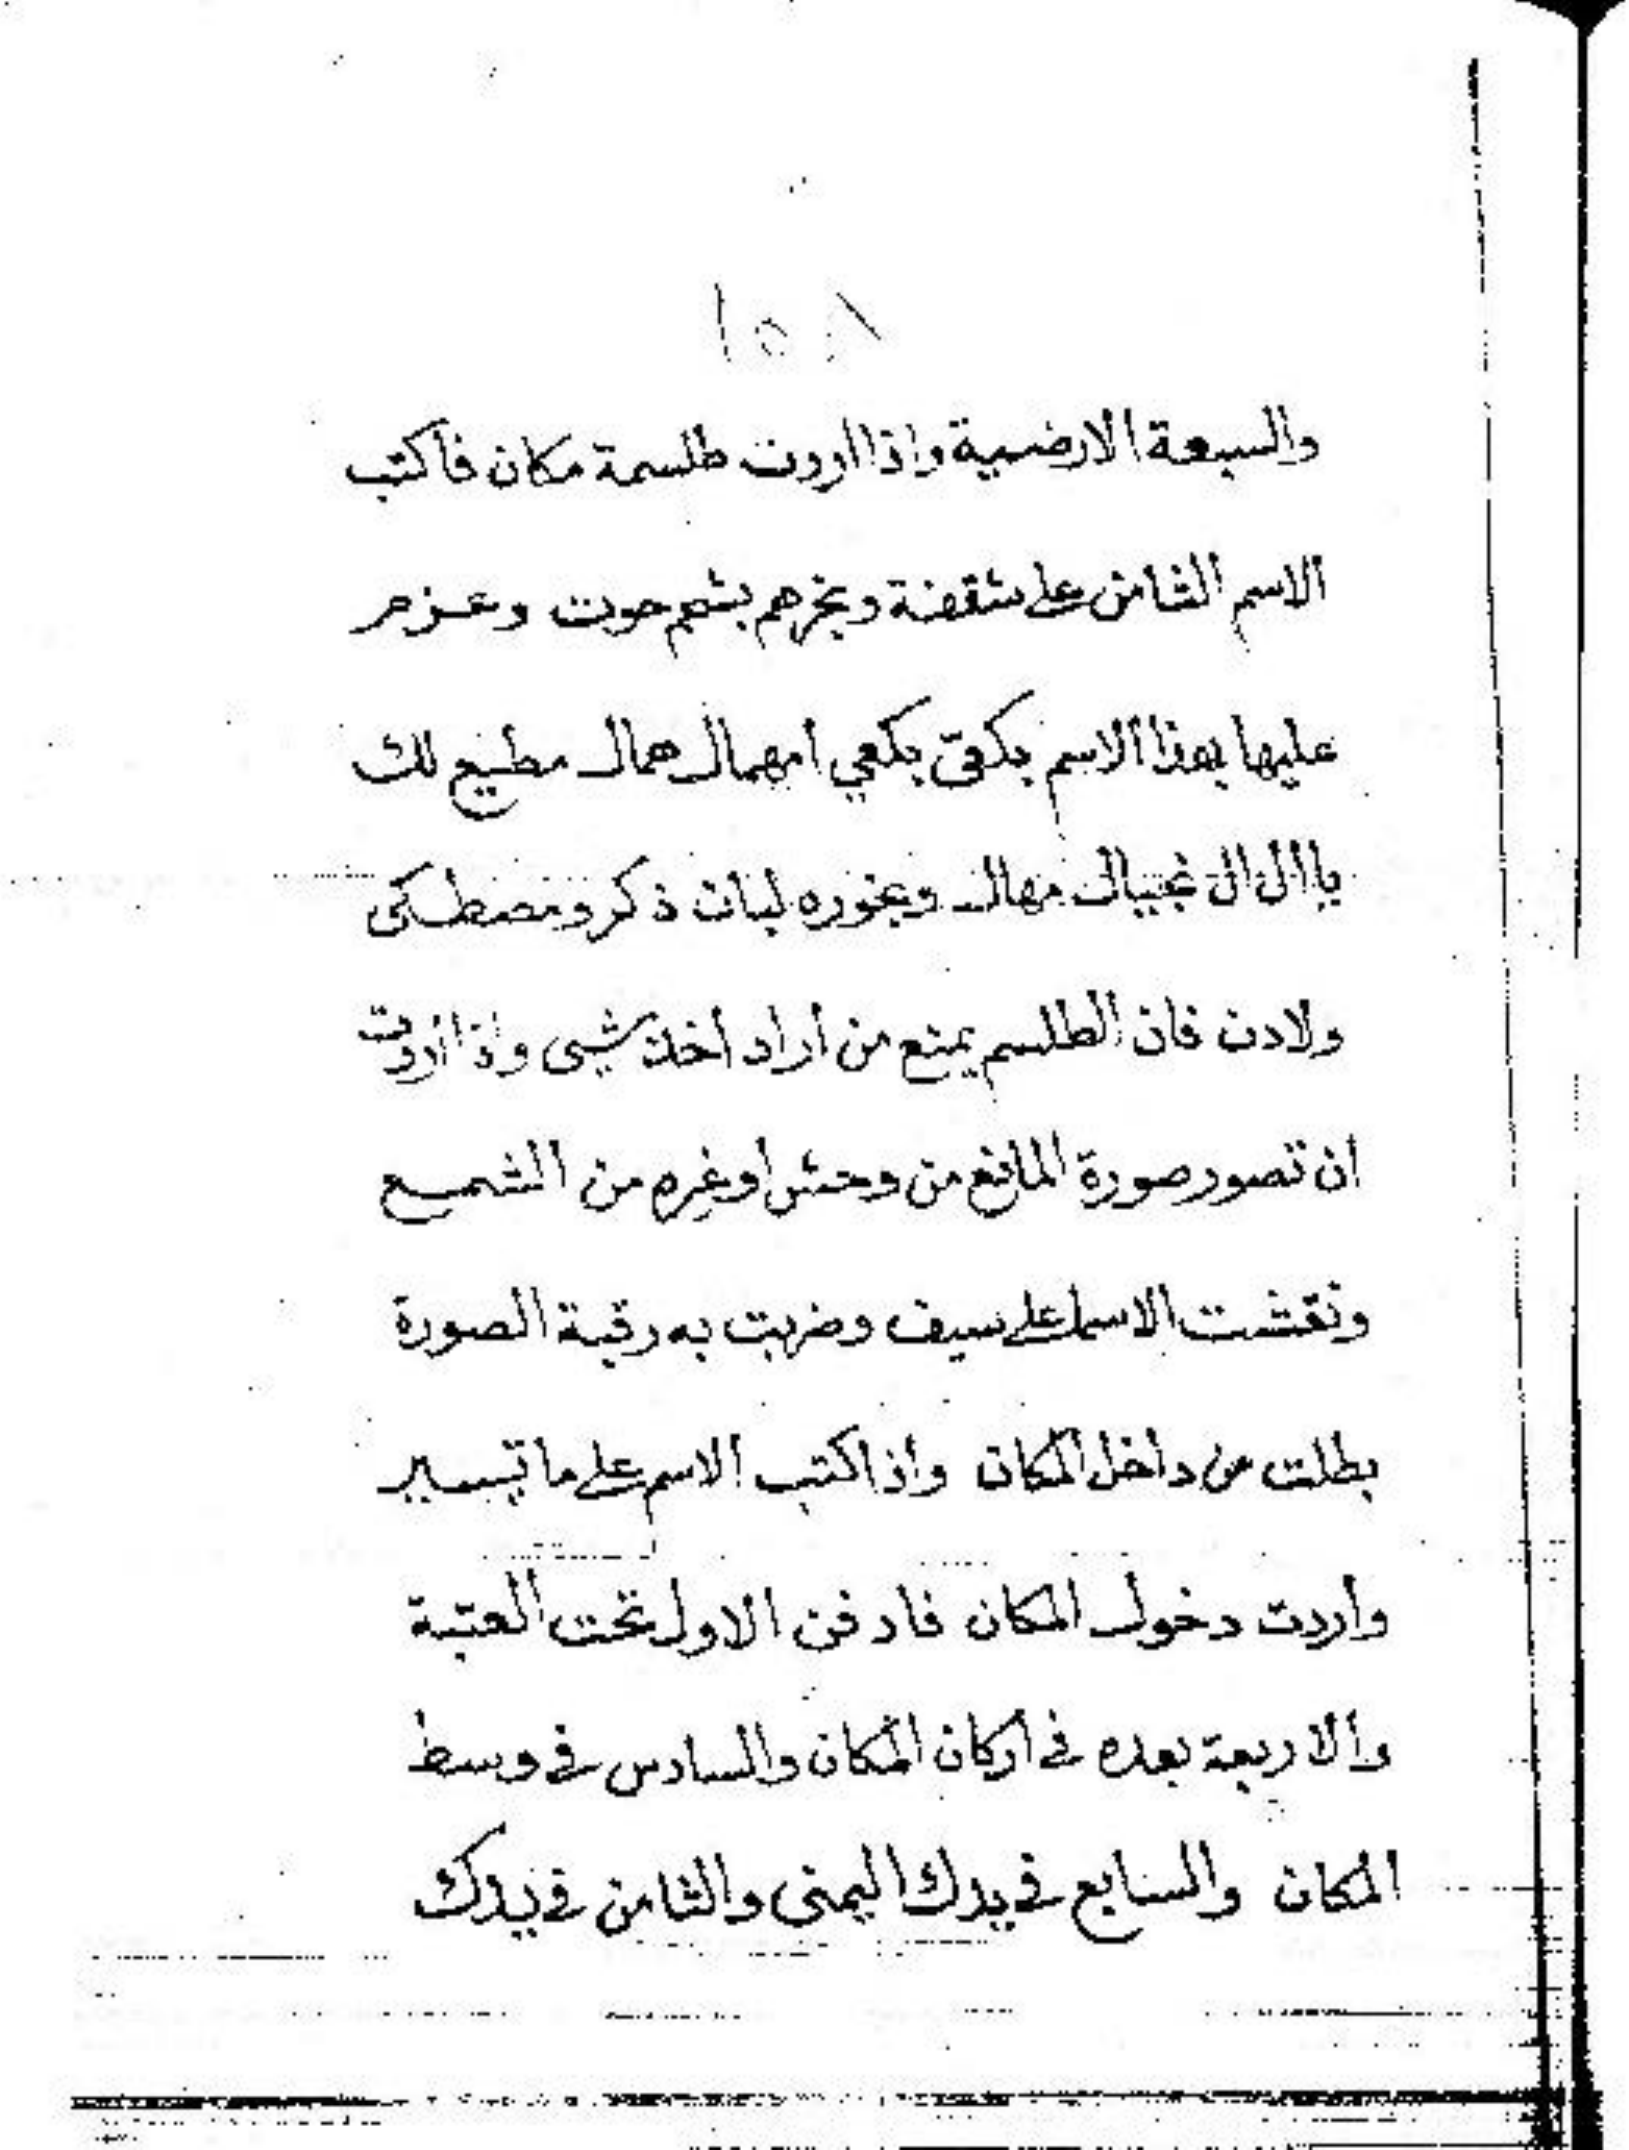 ١٥٨
والسبعة الارضية واذا اردت طلسمة مكان فاكتب
الاسم الثامن على شقفة وبخرهم بشحم حوت وعزم
عليها بهذا الاسم بكهى بكعي امهمال همال مطيع لك
يا ال ال مهال وبخوره لبان ذكر ومصطكى
ولادن فان الطلسم يمنع من اراد اخذ شيى واذا اردت
ان تصور صورة المانع من وحش او غيره من الشمع
ونقشت الاسما على سيف وضربت به رقبة الصورة
بطلت من داخل المكان واذا كتب الاسم على ما تيسير
واردت دخول المكان فادفن الاول تحت العتبة
والاربعة بعده في اركان المكان والسادس في وسط
المكان والسابع في يدك اليمنى والثامن في يدك